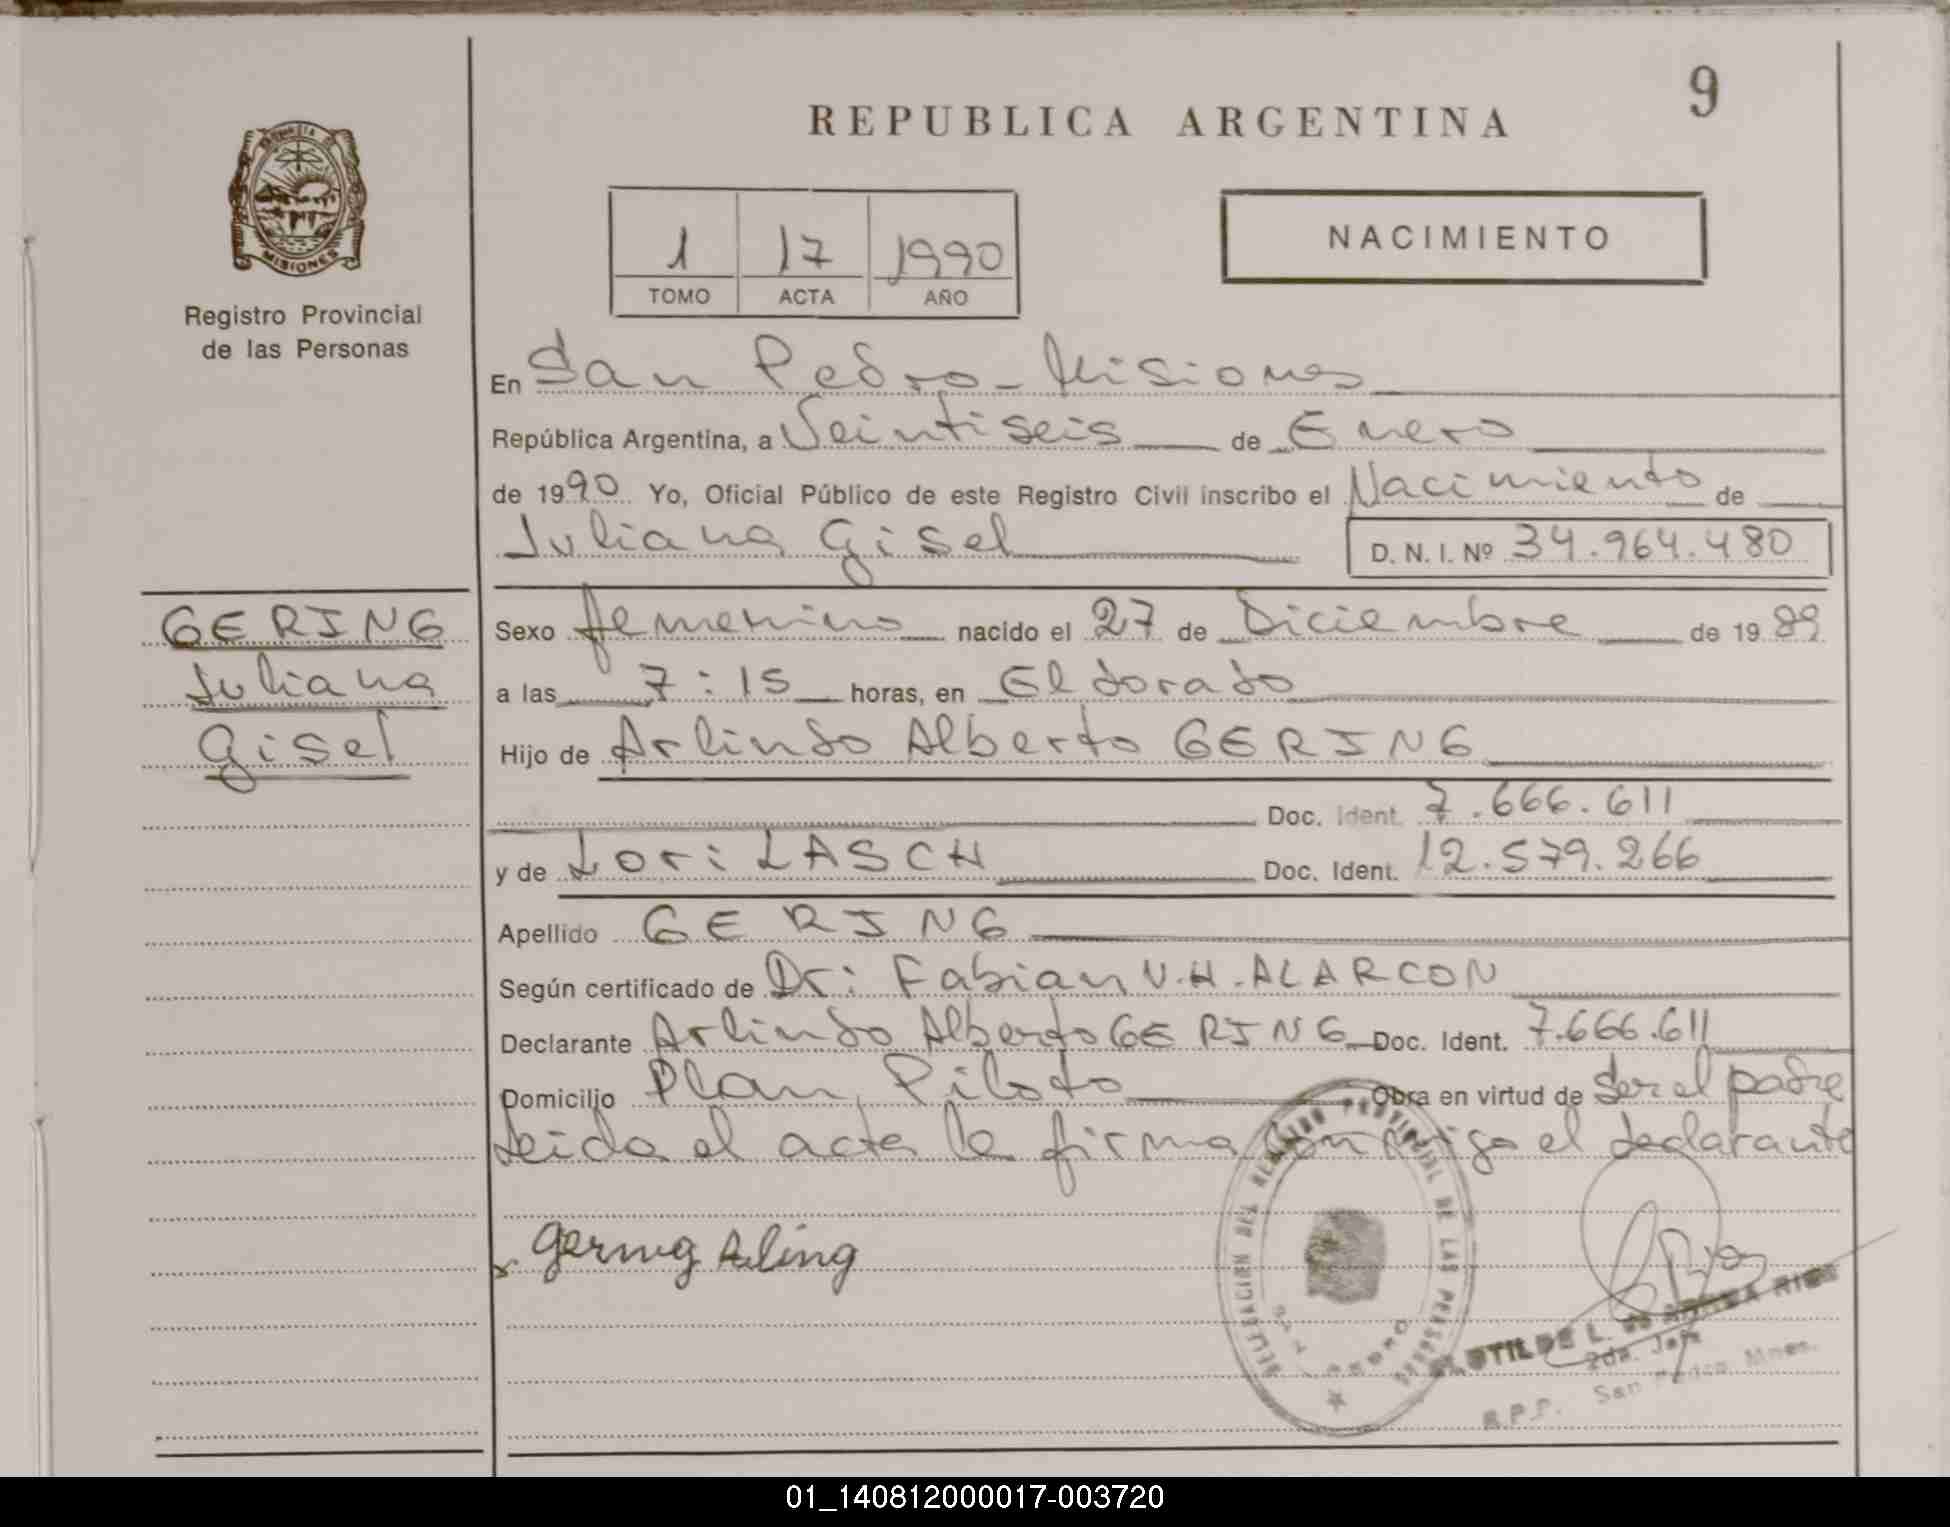 9
REPUBLICA ARGENTINA
MISIONES
Registro Provincial
de las Personas
1 17 1990
TOMO ACTA AÑO
NACIMIENTO
En San Pedro - Misiones
República Argentina, a Veintiseis de Enero
de 1990 Yo, Oficial Público de este Registro Civil inscribo el Nacimiento de
Juliana Gisel D. N. I. Nº 34.964.480
GERING
Juliana
Gisel
Sexo femenino nacido el 27 de Diciembre de 1989
a las 7:15 horas, en Eldorado
Hijo de Arlindo Alberto GERING
Doc. Ident. 7.666.611
y de Lori LASCH Doc. Ident. 12.579.266
Apellido GERING
Según certificado de Dr: Fabian V.H. ALARCON
Declarante Arlindo Alberto GERING Doc. Ident. 7.666.611
Domicilio Plan Piloto Obra en virtud de ser el padre
Leida el acta la firma conmigo el declarante
Gering
DELEGACION DEL REGISTRO PROVINCIAL DE LAS PERSONAS
SAN PEDRO
2da. Jefe
R.P.P. San Pedro. Mnes.
01_140812000017-003720